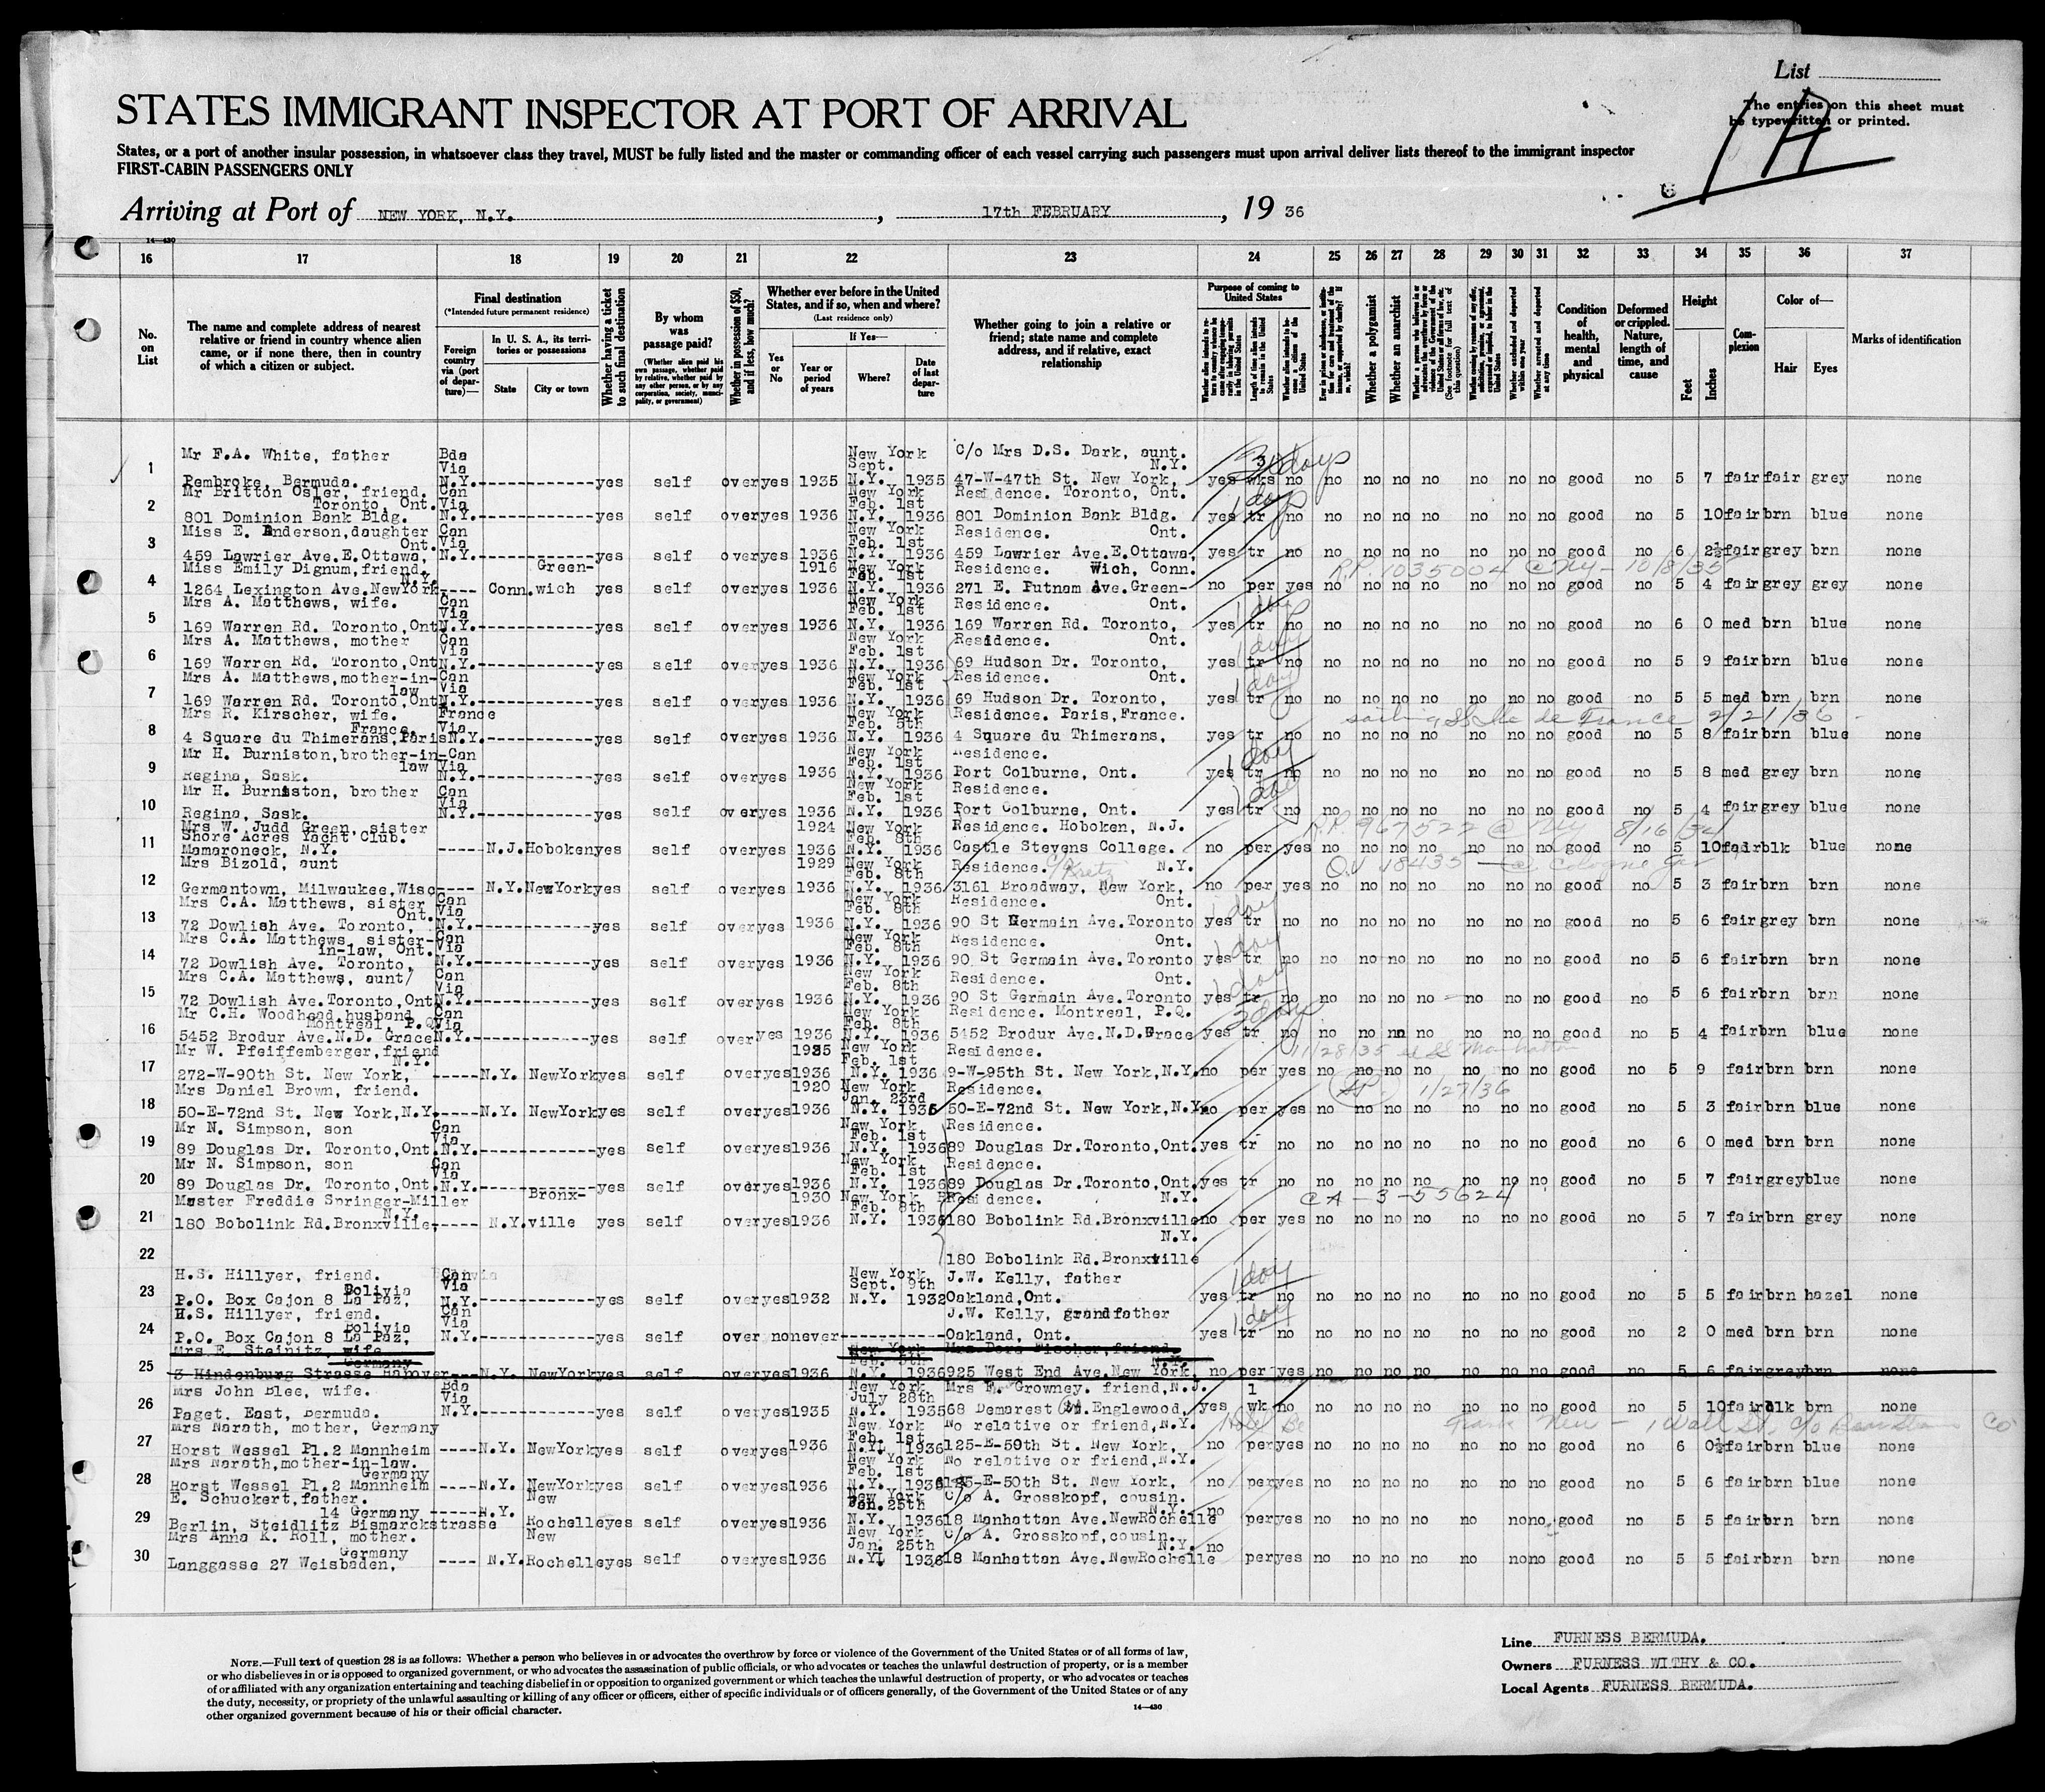 List
The entries on this sheet must
be typewritten or printed.
1A
STATES IMMIGRANT INSPECTOR AT PORT OF ARRIVAL
States, or a port of another insular possession, in whatsoever class they travel, MUST be fully listed and the master or commanding officer of each vessel carrying such passengers must upon arrival deliver lists thereof to the immigrant inspector
FIRST-CABIN PASSENGERS ONLY
Arriving at Port of NEW YORK, N.Y. , 17th FEBRUARY , 19 36
14—430
16 17 18 19 20 21 22 23 24 25 26 27 28 29 30 31 32 33 34 35 36 37
No. on List
The name and complete address of nearest relative or friend in country whence alien came, or if none there, then in country of which a citizen or subject.
Final destination
(*Intended future permanent residence)
Foreign country via (port of departure)—
In U. S. A., its territories or possessions
State
City or town
Whether having a ticket to such final destination
By whom was passage paid?
(Whether alien paid his own passage, whether paid by relative, whether paid by any other person, or by any corporation, society, municipality, or government)
Whether in possession of $50, and if less, how much?
Whether ever before in the United States, and if so, when and where?
(Last residence only)
Yes or No
If Yes—
Year or period of years
Where?
Date of last departure
Whether going to join a relative or friend; state name and complete address, and if relative, exact relationship
Purpose of coming to United States
Length of time alien intends to remain in the United States
Whether alien intends to become a citizen of the United States
Whether a polygamist
Whether an anarchist
Condition of health, mental and physical
Deformed or crippled. Nature, length of time, and cause
Height
Feet
Inches
Complexion
Color of—
Hair
Eyes
Marks of identification
1 Mr F.A. White, father Pembroke, Bermuda. Bda Via N.Y. yes self over yes 1935 New York Sept. N.Y. 1935 C/o Mrs D.S. Dark, aunt. N.Y. 47-W-47th St. New York, yes 3 wks no no no no no no no no good no 5 7 fair fair grey none
2 Mr Britton Osler, friend. Toronto, Ont. 801 Dominion Bank Bldg. Can Via N.Y. yes self over yes 1936 New York Feb. 1st N.Y. 1936 Residence. Toronto, Ont. 801 Dominion Bank Bldg. yes tr no no no no no no no no good no 5 10 fair brn blue none
1 day
3 Miss E. Anderson, daughter Ont. 459 Lawrier Ave.E.Ottawa, Can Via N.Y. yes self over yes 1936 New York Feb. 1st N.Y. 1936 Residence. Ont. 459 Lawrier Ave.E.Ottawa, yes tr no no no no no no no no good no 6 2½ fair grey brn none
R.P. 1035004 @ Ny - 10/8/35
4 Miss Emily Dignum, friend, N.Y. 1264 Lexington Ave.NewYork Conn. Green-wich yes self over yes 1916 1936 New York Feb. 1st N.Y. 1936 Residence. Wich, Conn. 271 E. Putnam Ave.Green- no per yes no no no no no no no good no 5 4 fair grey grey none
5 Mrs A. Matthews, wife. 169 Warren Rd. Toronto,Ont Can Via N.Y. yes self over yes 1936 New York Feb. 1st N.Y. 1936 Residence. Ont. 169 Warren Rd. Toronto, yes tr no no no no no no no no good no 6 0 med brn blue none
1 day
6 Mrs A. Matthews, mother 169 Warren Rd. Toronto,Ont Can Via N.Y. yes self over yes 1936 New York Feb. 1st N.Y. 1936 Residence. Ont. 69 Hudson Dr. Toronto, yes tr no no no no no no no no good no 5 9 fair brn blue none
1 day
7 Mrs A. Matthews,mother-in-law 169 Warren Rd. Toronto,Ont Can Via N.Y. yes self over yes 1936 New York Feb. 1st N.Y. 1936 Residence. Ont. 69 Hudson Dr. Toronto, yes tr no no no no no no no no good no 5 5 med brn brn none
1 day
sailing SS Ile de France 2/21/36
8 Mrs R. Kirscher, wife. France, 4 Square du Thimerans,Paris France Via N.Y. yes self over yes 1936 New York Feb. 8th N.Y. 1936 Residence. Paris,France. 4 Square du Thimerans, yes tr no no no no no no no no good no 5 8 fair brn blue none
9 Mr H. Burniston,brother-in-law Regina, Sask. Can Via N.Y. yes self over yes 1936 New York Feb. 1st N.Y. 1936 Residence. Port Colburne, Ont. yes tr no no no no no no no no good no 5 8 med grey brn none
1 day
10 Mr H. Burniston, brother Regina, Sask. Can Via N.Y. yes self over yes 1936 New York Feb. 1st N.Y. 1936 Residence. Port Colburne, Ont. yes tr no no no no no no no no good no 5 4 fair grey blue none
1 day
R.P. 967522 @ Ny 8/16/34
11 Mrs W. Judd Green, sister Shore Acres Yacht Club. Mamaroneck, N.Y. N.J. Hoboken yes self over yes 1924 1936 New York Feb. 8th N.Y. 1936 Residence. Hoboken, N.J. Castle Stevens College. no per yes no no no no no no no good no 5 10 fair blk blue none
QV 18435 @ Cologne Ger
12 Mrs Bizold, aunt Germantown, Milwaukee,Wisc N.Y. NewYork yes self over yes 1929 1936 New York Feb. 8th N.Y. 1936 Residence. N.Y. 3161 Broadway, New York, no per yes no no no no no no no good no 5 3 fair brn brn none
13 Mrs C.A. Matthews, sister Ont. 72 Dowlish Ave. Toronto, Can Via N.Y. yes self over yes 1936 New York Feb. 8th N.Y. 1936 Residence. Ont. 90 St Germain Ave.Toronto yes tr no no no no no no no no good no 5 6 fair grey brn none
1 day
14 Mrs C.A. Matthews, sister-in-law, Ont. 72 Dowlish Ave. Toronto, Can Via N.Y. yes self over yes 1936 New York Feb. 8th N.Y. 1936 Residence. Ont. 90 St Germain Ave.Toronto yes tr no no no no no no no no good no 5 6 fair brn brn none
1 day
15 Mrs C.A. Matthews, aunt/ 72 Dowlish Ave.Toronto,Ont Can Via N.Y. yes self over yes 1936 New York Feb. 8th N.Y. 1936 Residence. Ont. 90 St Germain Ave.Toronto yes tr no no no no no no no no good no 5 6 fair brn brn none
1 day
16 Mr C.H. Woodhead,husband Montreal, P.Q. 5452 Brodur Ave.N.D. Grace Can Via N.Y. yes self over yes 1936 New York Feb. 8th N.Y. 1936 Residence. Montreal, P.Q. 5452 Brodur Ave.N.D.Grace yes tr no no no no no no no no good no 5 4 fair brn blue none
3 days
11/28/35 SS Manhattan
17 Mr W. Pfeiffemberger,friend N.Y. 272-W-90th St. New York, N.Y. NewYork yes self over yes 1935 1936 New York Feb. 1st N.Y. 1936 Residence. 9-W-95th St. New York,N.Y. no per yes no no no no no no no good no 5 9 fair brn brn none
1/27/36
18 Mrs Daniel Brown, friend. 50-E-72nd St. New York,N.Y. N.Y. NewYork yes self over yes 1920 1936 New York Jan. 23rd N.Y. 1936 Residence. 50-E-72nd St. New York,N.Y. no per yes no no no no no no no good no 5 3 fair brn blue none
19 Mr N. Simpson, son 89 Douglas Dr. Toronto,Ont. Can Via N.Y. yes self over yes 1936 New York Feb. 1st N.Y. 1936 Residence. 89 Douglas Dr.Toronto,Ont. yes tr no no no no no no no no good no 6 0 med brn brn none
20 Mr N. Simpson, son 89 Douglas Dr. Toronto,Ont. Can Via N.Y. yes self over yes 1936 New York Feb. 1st N.Y. 1936 Residence. 89 Douglas Dr.Toronto,Ont. yes tr no no no no no no no no good no 5 7 fair grey blue none
CA - 3 - 55624
21 Master Freddie Springer-Miller N.Y. 180 Bobolink Rd.Bronxville, N.Y. Bronx-ville yes self over yes 1930 1936 New York Feb. 8th N.Y. 1936 Residence. N.Y. 180 Bobolink Rd.Bronxville no per yes no no no no no no no good no 5 7 fair brn grey none
22 N.Y. 180 Bobolink Rd.Bronxville
23 H.S. Hillyer, friend. Bolivia P.O. Box Cajon 8 La Paz, Can Via N.Y. yes self over yes 1932 New York Sept. 9th N.Y. 1932 J.W. Kelly, father Oakland,Ont. yes tr no no no no no no no no good no 5 5 fair brn hazel none
1 day
24 H.S. Hillyer, friend. Bolivia P.O. Box Cajon 8 La Paz, Can Via N.Y. yes self over no never J.W. Kelly, grandfather Oakland, Ont. yes tr no no no no no no no no good no 2 0 med brn brn none
1 day
25 Mrs E. Steinitz, wife Germany 3 Hindenburg Strasse Hanover N.Y. NewYork yes self over yes 1936 New York Feb. 8th N.Y. 1936 Mrs. Dora Fischer,friend. N.Y. 925 West End Ave.New York, no per yes no no no no no no no good no 5 6 fair grey brn none
26 Mrs John Blee, wife. Paget. East, Bermuda. Bda Via N.Y. yes self over yes 1935 New York July 28th N.Y. 1935 Mrs F. Growney. friend,N.J. 68 Demarest Englewood, yes 1 wk no no no no no no no no good no 5 10 fair blk brn none
27 Mrs Narath, mother, Germany Horst Wessel Pl.2 Mannheim N.Y. NewYork yes self over yes 1936 New York Feb. 1st N.Y. 1936 No relative or friend,N.Y. 125-E-50th St. New York, no per yes no no no no no no no good no 6 0½ fair brn blue none
28 Mrs Narath,mother-in-law. Germany Horst Wessel Pl.2 Mannheim N.Y. NewYork yes self over yes 1936 New York Feb. 1st N.Y. 1936 No relative or friend,N.Y. 125-E-50th St. New York, no per yes no no no no no no no good no 5 6 fair brn blue none
29 E. Schuckert,father. 14 Germany Berlin, Steidlitz Bismarckstrasse N.Y. New Rochelle yes self over yes 1936 New York Jan. 25th N.Y. 1936 C/o A. Grosskopf, cousin. N.Y. 18 Manhattan Ave.NewRochelle no per yes no no no no no no no good no 5 5 fair brn brn none
30 Mrs Anna K. Roll, mother. Germany Langgasse 27 Weisbaden, N.Y. New Rochelle yes self over yes 1936 New York Jan. 25th N.Y. 1936 C/o A. Grosskopf,cousin. N.Y. 18 Manhattan Ave.NewRochelle no per yes no no no no no no no good no 5 5 fair brn brn none
NOTE.—Full text of question 28 is as follows: Whether a person who believes in or advocates the overthrow by force or violence of the Government of the United States or of all forms of law,
or who disbelieves in or is opposed to organized government, or who advocates the assassination of public officials, or who advocates or teaches the unlawful destruction of property, or is a member
of or affiliated with any organization entertaining and teaching disbelief in or opposition to organized government or which teaches the unlawful destruction of property, or who advocates or teaches
the duty, necessity, or propriety of the unlawful assaulting or killing of any officer or officers, either of specific individuals or of officers generally, of the Government of the United States or of any
other organized government because of his or their official character.
14—430
Line FURNESS BERMUDA.
Owners FURNESS WITHY & CO.
Local Agents FURNESS BERMUDA.